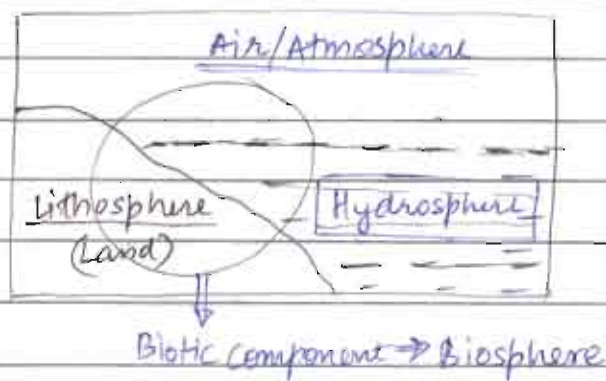 Air/Atmosphere
Lithosphere
(Land)
Hydrosphere
Biotic Component → Biosphere